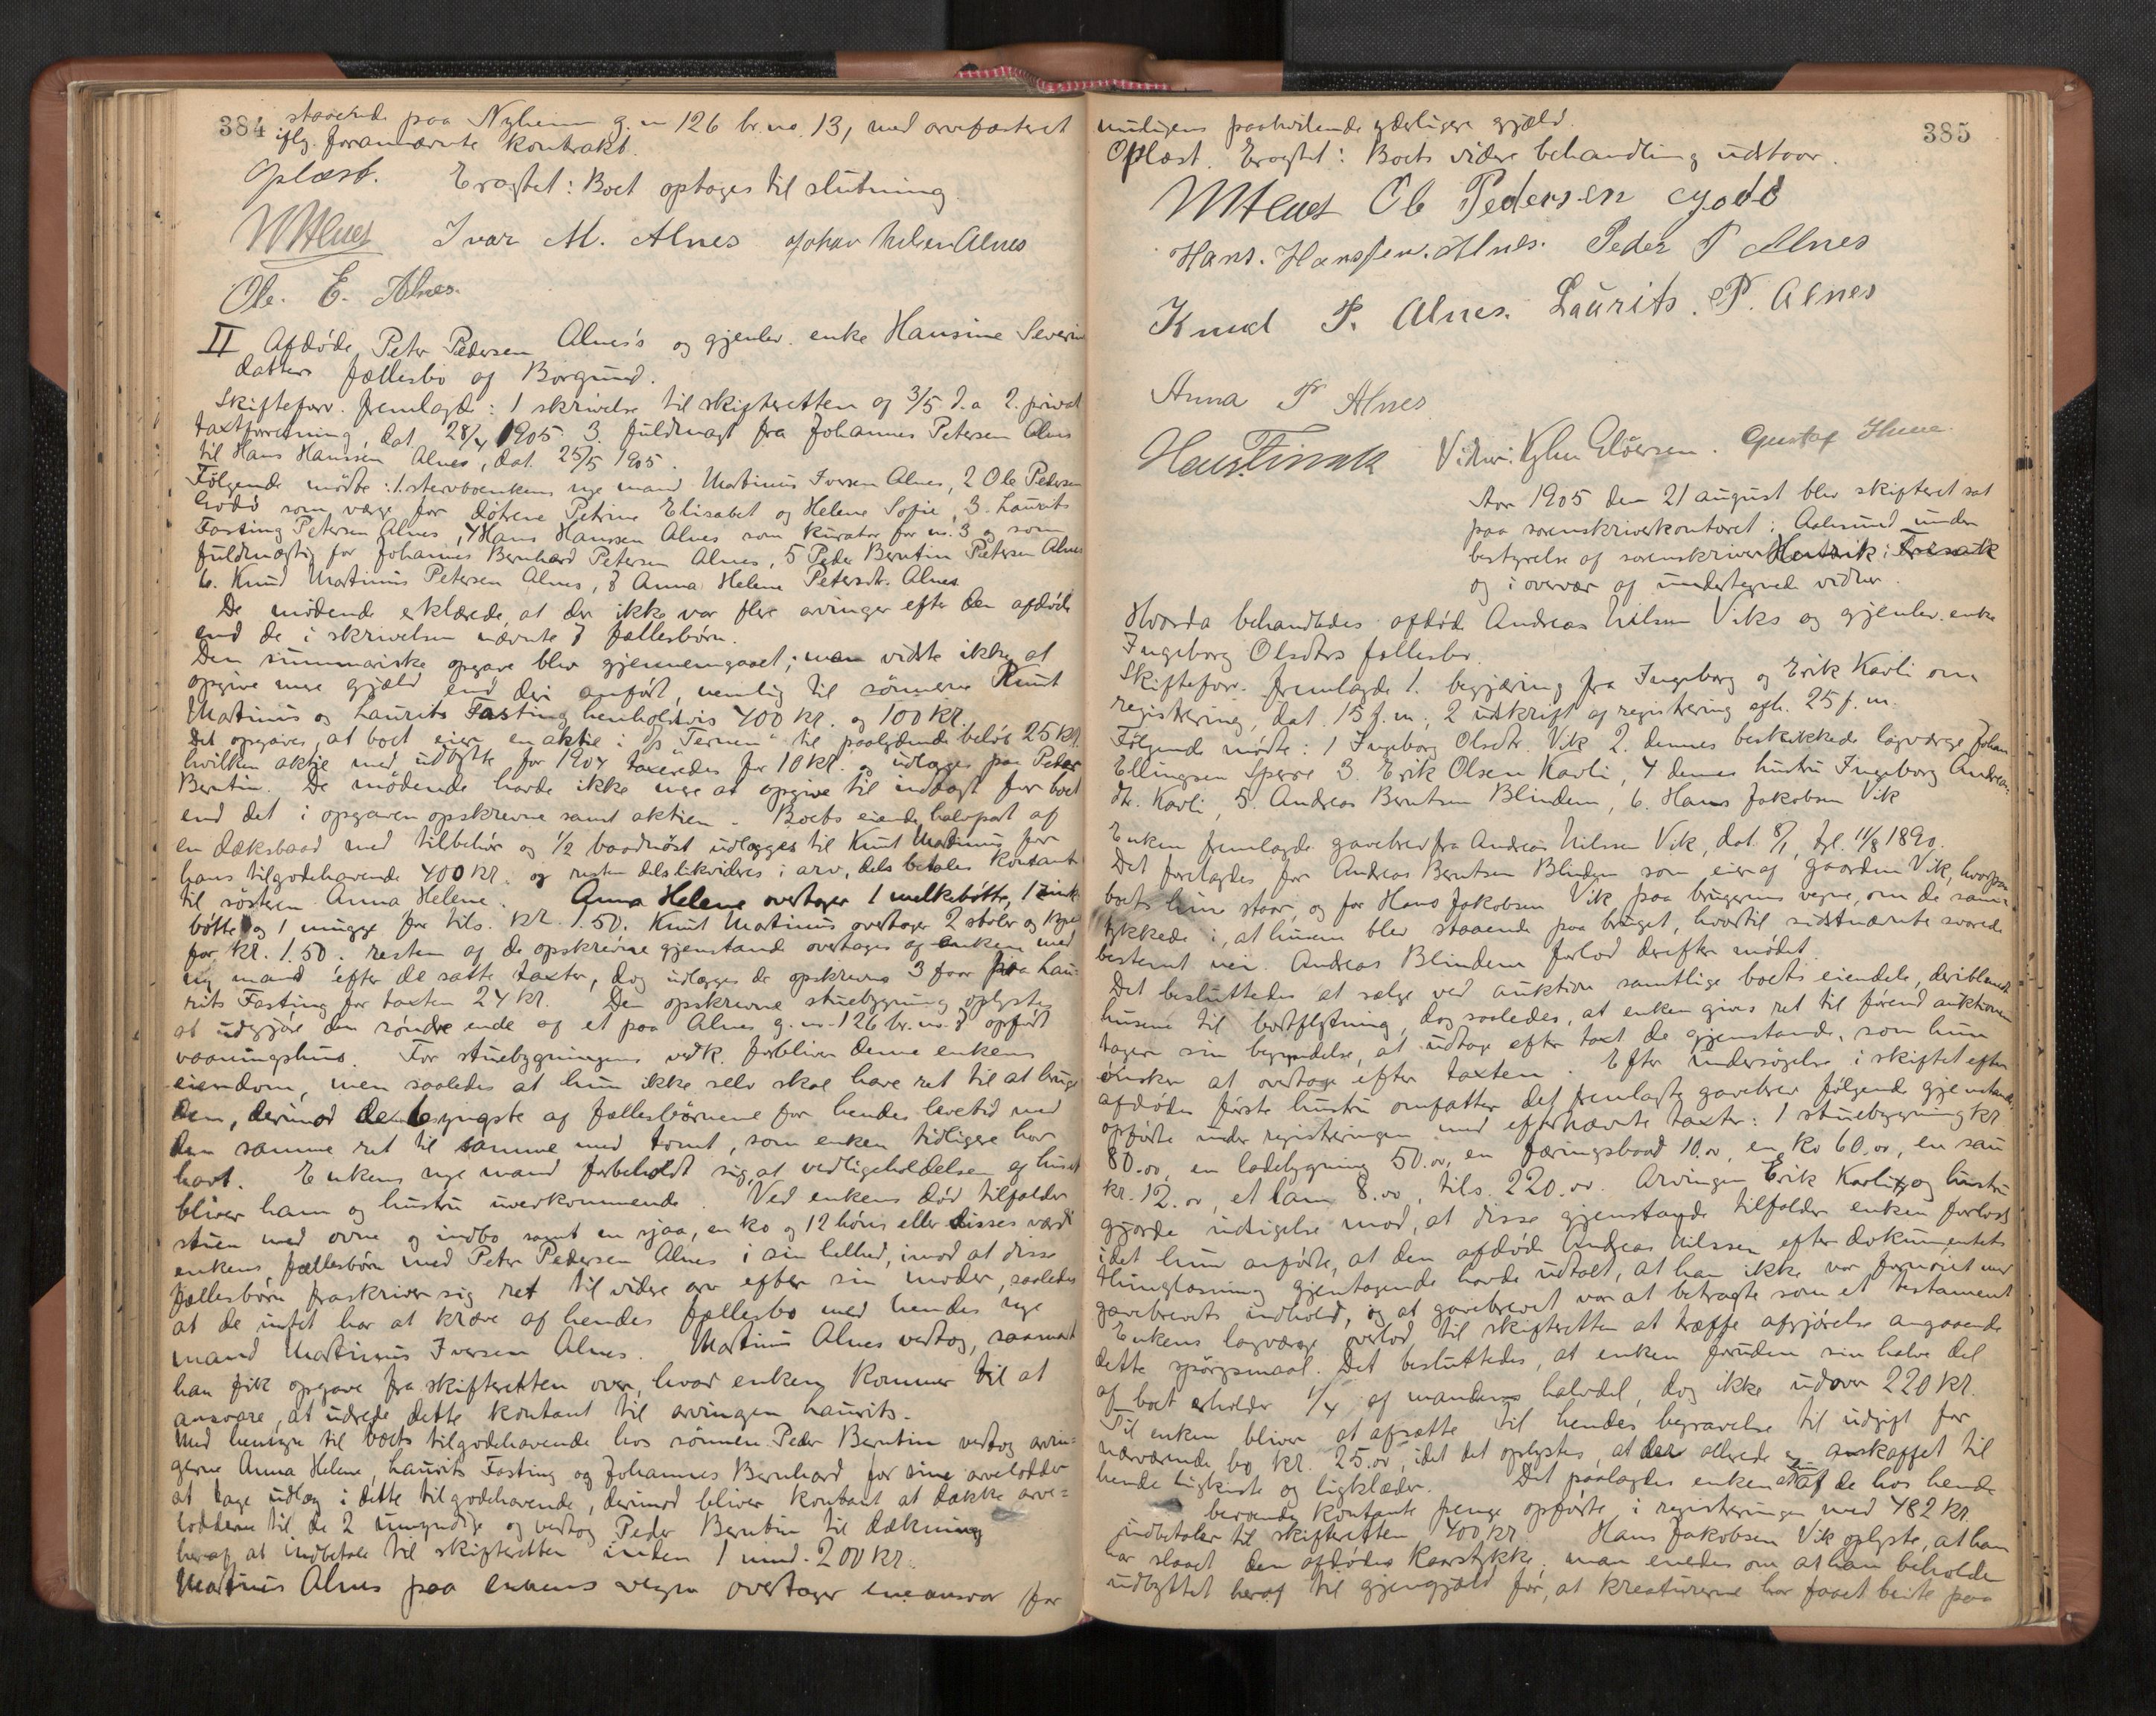 384
staaende paa Nyheim g. no 126 br. no. 13, med arvefæsteret
iflg. forannævnte kontrakt.
Oplæst. Eragtet: Boet optages til slutning
Ivar M. Alnes Johan Nilsen Alnes
Ole. E. Alnes.
II Afdøde Peter Pedersen Alnes's og gjenlev. enke Hansine Severin
datters fællesbo af Borgund.
Skifteforv. fremlagde: 1 skrivelse til skifteretten af 3/5 d.a 2. privat
taxtforretning, dat. 28/4 1905. 3. fuldmagt fra Johannes Petersen Alnes
til Hans Hanssen Alnes, dat. 25/5 1905.
Følgende mødte: 1. stervboenkens nye mand Martinus Iversen Alnes, 2 Ole Pedersen
Godø som værge for døtrene Petrine Elisabet og Helene Sofie, 3. Laurits
Fasting Petersen Alnes, 4 Hans Hanssen Alnes som kurator for no. 3 og som
fuldmægtig for Johannes Bernhard Petersen Alnes, 5 Peder Berntin Petersen Alnes
6. Knud Martinus Petersen Alnes, 7 Anna Helene Petersdtr. Alnes.
De mødende erklærede, at der ikke var flere arvinger efter den afdøde
end de i skrivelsen nævnte 7 fællesbørn.
Den summariske opgave blev gjennemgaaet; man vidste ikke at
opgive mere gjæld end der anført, nemlig til sønnerne Knut
Martinus og Laurits Fasting henholdsvis 400 kr. og 100 kr.
Det opgaves, at boet eier en aktie i d/s "Ternen" til paalydende beløb 25 kr.
hvilken aktie med udbytte for 1904 taxeredes for 10 kr. og udlægges paa Peder
Berntin. De mødende havde ikke mere at opgive til indtægt for boet
end det i opgaven opskrevne samt aktien. Boets eiende halvpart af
en dæksbaad med tilbehør og 1/2 baadnøst udlægges til Knut Martinus for
hans tilgodehavende 400 kr. og resten dels likvideres i arv, dels betales kontant
til søsteren Anna Helene. Anna Helene overtager 1 melkebøtte, 1 zink
bøtte og 1 mugge for tils. kr. 1.50. Knut Martinus overtager 2 stoler og
for kr. 1.50. resten af de opskrevne gjenstande overtages af enken med
ny mand efter de satte taxter, dog udlægges de opskrevne 3 faar paa Lau-
rits Fasting for taxten 24 kr. Den opskrevne stuebygning oplystes
at udgjøre den søndre ende af et paa Alnes g. no. 126 br. no. 8 opført
vaaningshus. For stuebygningens vedk. forbliver denne enkens
eiendom, men saaledes at hun ikke selv skal have ret til at bruge
den, derimod de 6 yngste af fællesbørnene for hendes levetid med
den samme ret til samme med tomt, som enken tidligere har
havt. Enkens nye mand forbeholdt sig, at vedligeholdelsen af huset
bliver ham og hustru uvedkommende. Ved enkens død tilfalder
stuen med ovne og indbo samt en sjaa, en ko og 12 høns eller disses værdi
enkens fællesbørn med Peter Pedersen Alnes i sin helhed, imod at disse
fællesbørn fraskriver sig ret til videre arv efter sin moder, saaledes
at de intet har at kræve af hendes fællesbo med hendes nye
mand Martinus Iversen Alnes. Martinus Alnes vedtog, saasnart
han fik opgave fra skifteretten over, hvad enken kommer til at
ansvare, at udrede dette kontant til arvingen Laurits.
Med hensyn til boets tilgodehavende hos sønnen Peder Berntin vedtog arvin-
gerne Anna Helene, Laurits Fasting og Johannes Bernhard for sine arvelodder
at tage udlæg i dette tilgodehavende, derimod bliver kontant at dække arve-
lodderne til de 2 umyndige og vedtog Peder Berntin til dækning
heraf at indbetale til skifteretten inden 1 mnd. 200 kr.
Martinus Alnes paa enkens vegne overtager eneansvar for
385
muligens paahvilende yderligere gjæld.
Oplæst. Eragtet: Boets videre behandling udstaar.
Ole Pedersen Godø
Hans. Hanssen. Alnes. Peder P Alnes
Knud P. Alnes. Laurits. P. Alnes
Anna P Alnes
Vidner: Gustaf
Aar 1905 den 21 august blev skifteret sat
paa sorenskriverkontoret i Aalesund under
bestyrelse af sorenskriver
og i overvær af undertegnede vidner.
Hvorda behandledes afdøde Andreas Nilsen Viks og gjenlev. enke
Ingeborg Olsdtrs fællesbo.
Skifteforv. fremlagde 1. begjæring fra Ingeborg og Erik Kavli om
registrering, dat. 15 f.m., 2 udskrift af registrering afh. 25 f.m.
Følgende mødte: 1 Ingeborg Olsdtr. Vik 2. dennes beskikkede lagværge Johan
Ellingsen Sperre 3. Erik Olsen Kavli, 4 dennes hustru Ingeborg Andreas-
dtr. Kavli, 5. Andreas Berntsen Blindem, 6. Hans Jakobsen Vik
Enken fremlagde gavebrev fra Andreas Nilssen Vik, dat. 8/1, tgl. 11/8 1890.
Det forelagdes for Andreas Berntsen Blindem som eier af gaarden Vik, hvorpaa
boets huse staar, og for Hans Jakobsen Vik paa brugerens vegne, om de sam-
tykkede i, at husene blev staaende paa bruget, hvortil sidstnævnte svarede
bestemt nei. Andreas Blindem forlod derefter mødet.
Det besluttedes at sælge ved auktion samtlige boets eiendele, deriblandt
husene til bortflytning, dog saaledes, at enken gives ret til førend auktionen
tager sin begyndelse, at udtage efter taxt de gjenstande, som hun
ønsker at overtage efter taxten. Efter undersøgelse i skiftet efter
afdødes første hustru omfatter det fremlagte gavebrev følgende gjenstande
opførte under registreringen med efternævnte taxter: 1 stuebygning kr.
80.00, en ladebygning 50.00, en færingsbaad 10.00, en ko 60.00, en sau
kr. 12.00, et lam 8.00, tils. 220.00. Arvingen Erik Kavli og hustru
gjorde indsigelse mod, at disse gjenstande tilfalder enken forlods
idet hun anførte, at den afdøde Andreas Nilssen efter dokumentets
thinglæsning gjentagende havde udtalt, at han ikke var fornøiet med
gavebrevets indhold, og at gavebrevet var at betragte som et testament
Enkens lagværge overlod til skifteretten at træffe afgjørelse angaaende
dette spørgsmaal. Det besluttedes, at enken foruden sin halve del
af boet erholder 1/4 af mandens halvdel, dog ikke udover 220 kr.
Til enken bliver at afsætte til hendes begravelse til udgift for
nærværende bo kr. 25.00, idet det oplystes, at der allerede er anskaffet til
hende ligkiste og ligklæder. Det paalagdes enken at af de hos hende
beroende kontante penge opførte i registreringen med 482 kr.
indbetaler til skifteretten 400 kr. Hans Jakobsen Vik oplyste, at han
har slaaet den afdødes kaarstykke; man enedes om at han beholder
udbyttet heraf til gjengjæld for, at kreaturerne har faaet beite paa